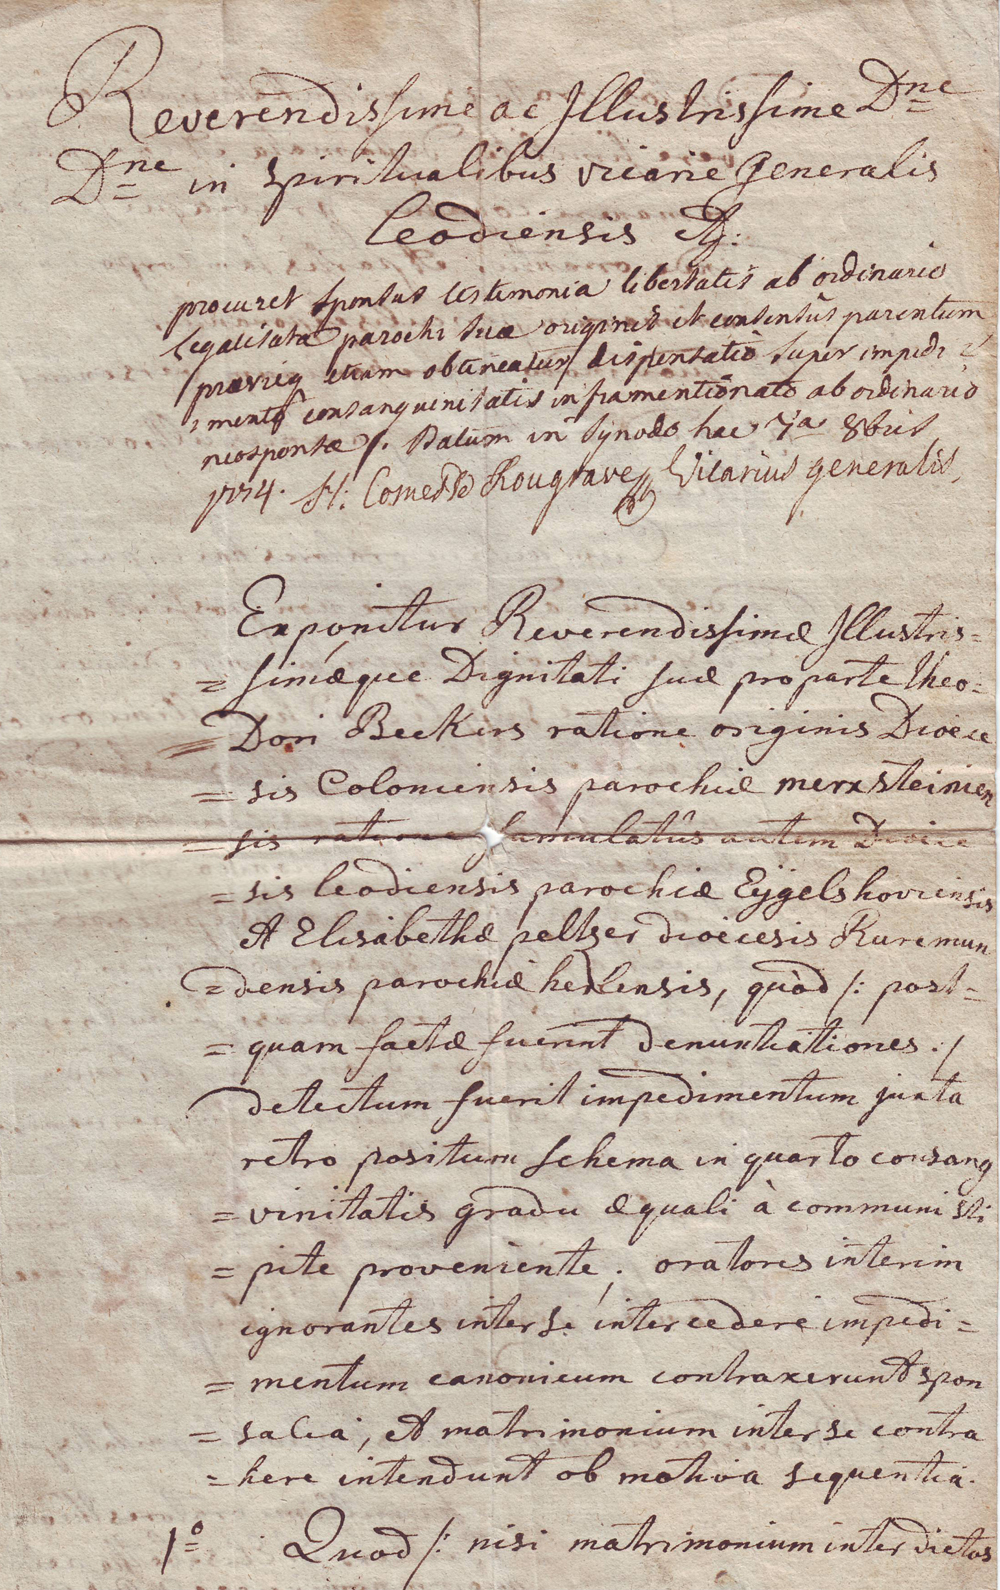 Reverendissime ac Illustrissime Dne
Dne in spiritualibus vicarie Generalis
Leodiensis &:
procuret sponsus testimonia libertatis ab ordinario
legalisata parochi suæ originis et consensûs parentum
prævieq etiam obtineatur dispensatio super impedi=
=mento consanguinitatis inframentionato ab ordinario
neosponsæ. Datum in synodo hac 7a 8bris
1774. H: Comes De Rougrave Vicarius generalis,
Exponitur Reverendissimæ Illustris=
=simæque Dignitati suæ pro parte Theo=
=Dori Beckers ratione originis Dioece
=sis Coloniensis parochiæ merxsteinien
=sis ratione famulatûs autem Dioece
=sis leodiensis parochiæ Eijgelshoviensis
et Elisabethæ peltzer dioecesis Ruremun
=densis parochiæ herlensis, quòd /: post=
=quam factæ fuerint denuntiationes :/
detectum fuerit impedimentum juxta
retro positum schema in quarto consang
=vinitatis gradu æquali à communi sti
=pite proveniente; oratores interim
ignorantes inter se intercedere impedi=
=mentum canonicum contraxerunt spon
=salia, et matrimonium inter se contra
=here intendunt ob motiva sequentia.
1o Quod /: nisi matrimonium inter dictos